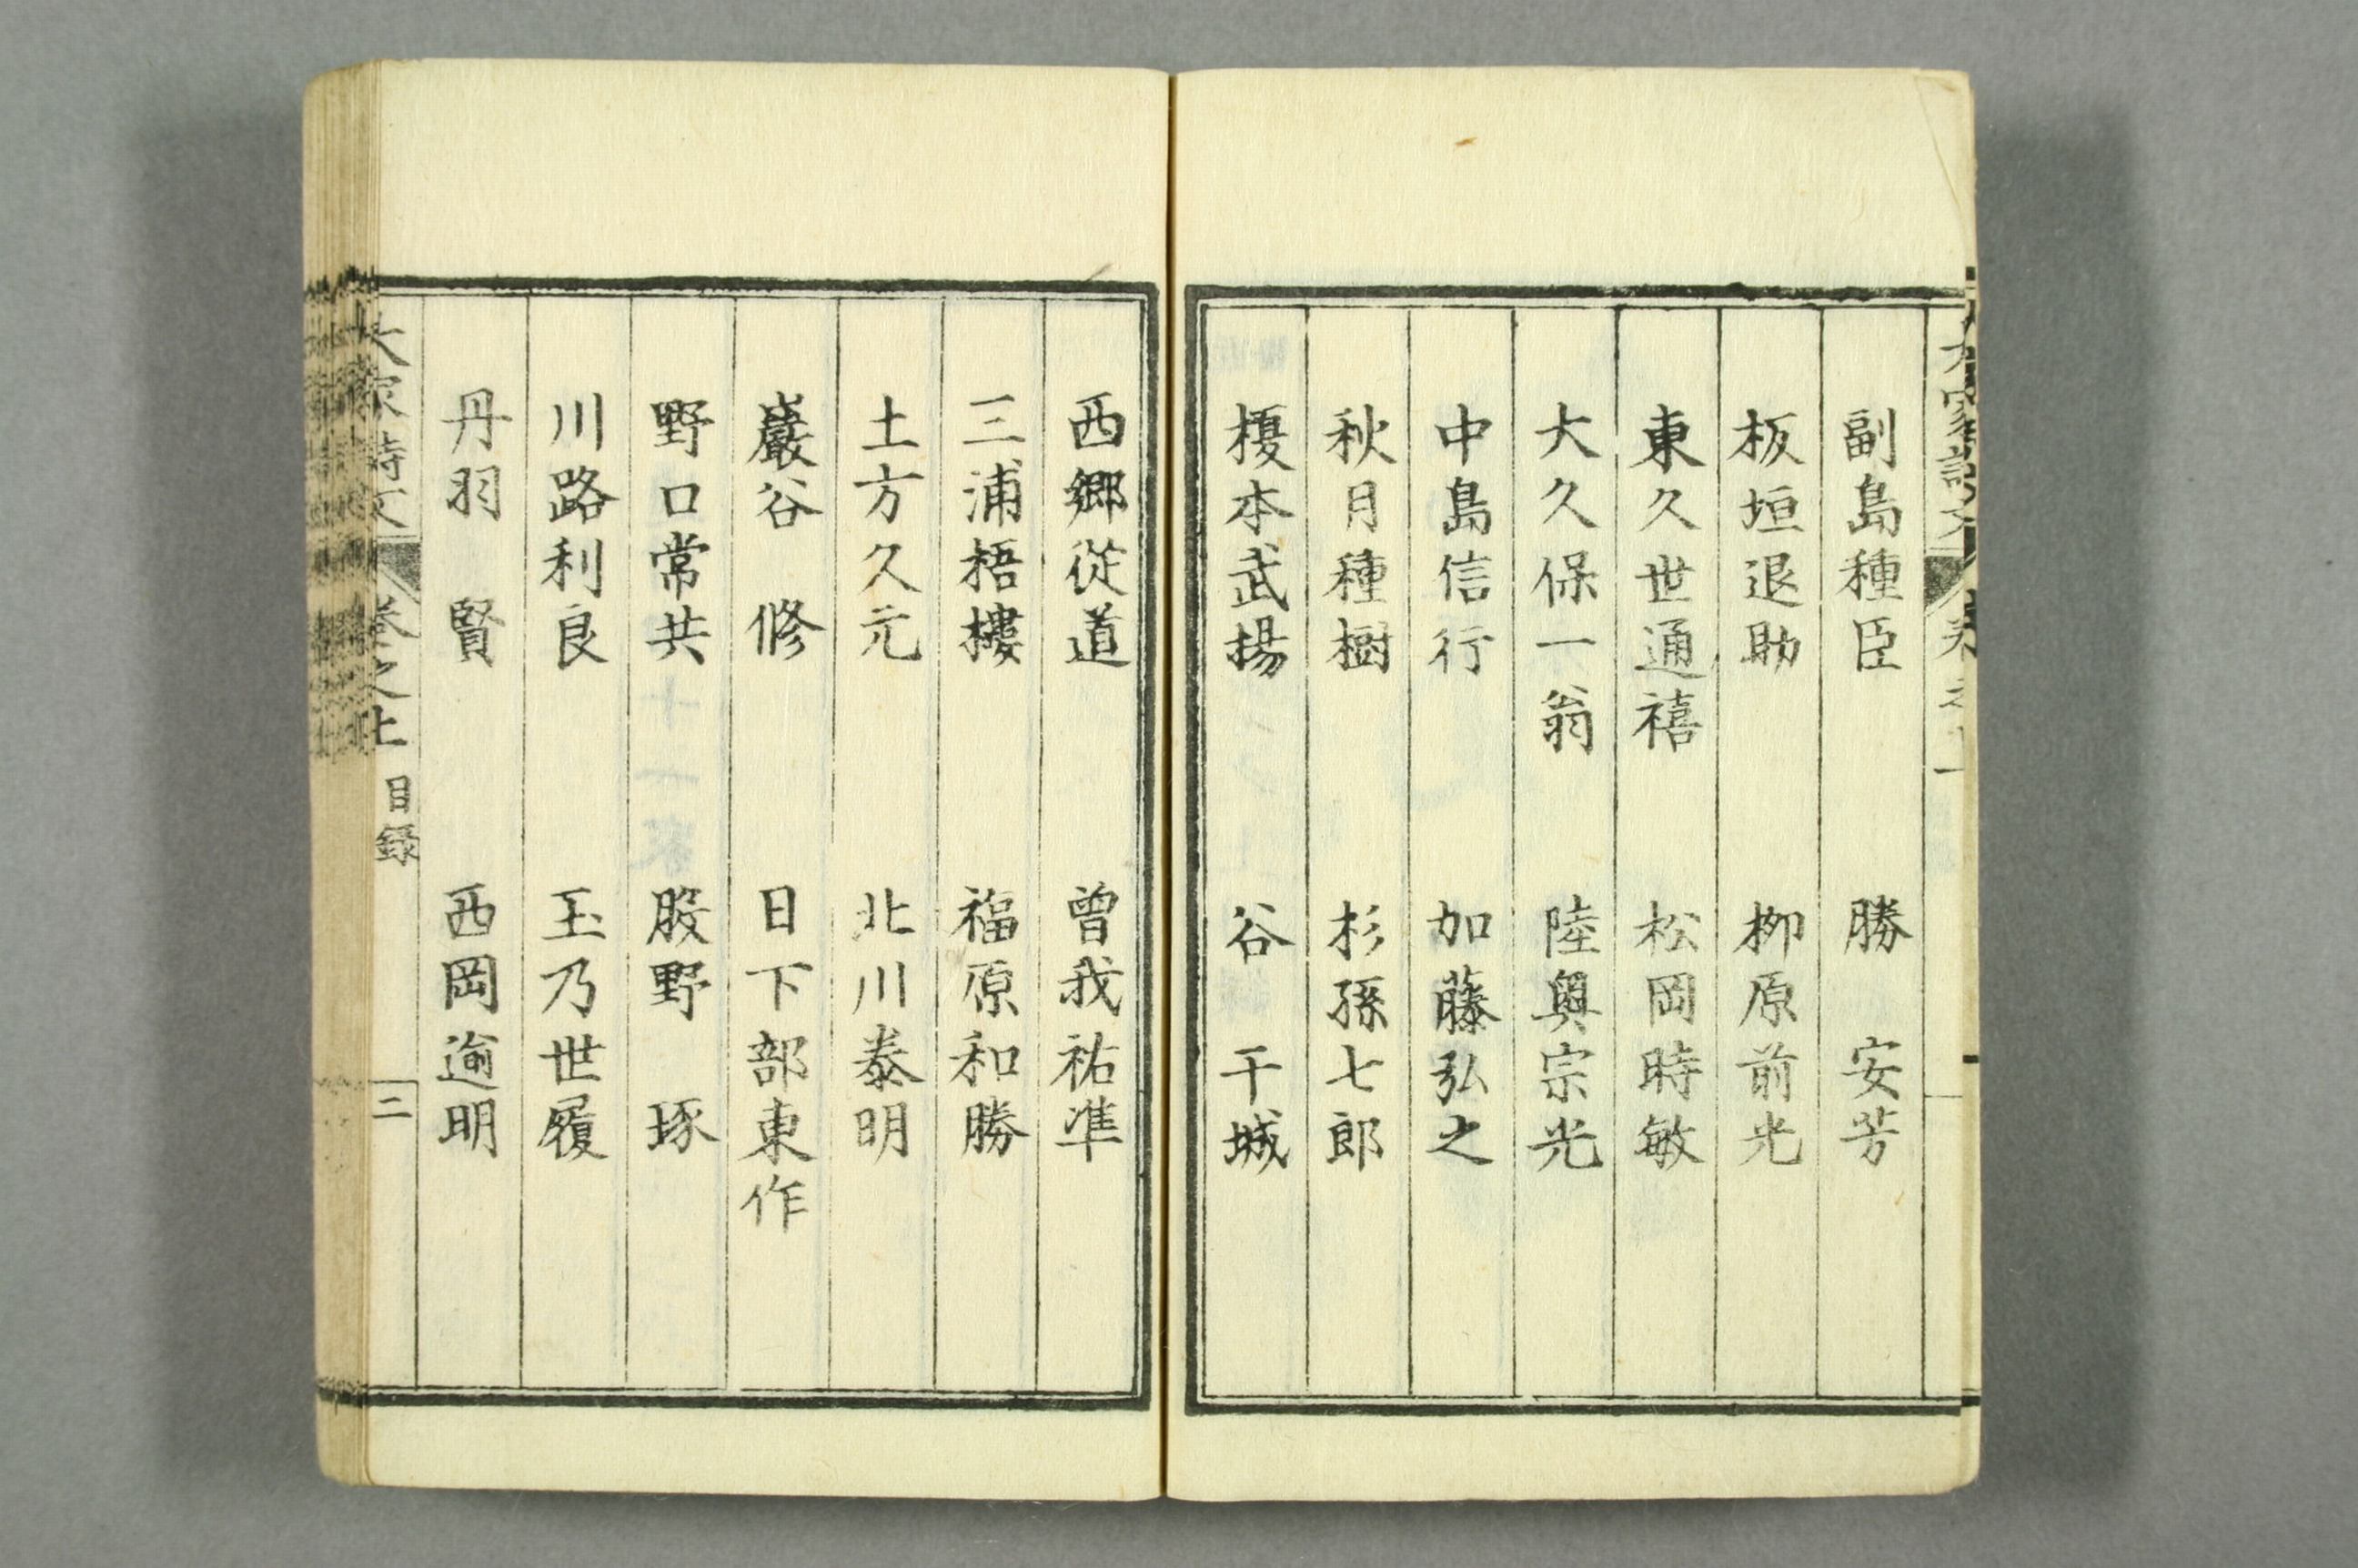 副島種臣　勝　安芳
板垣退助　栁原前光
東久世通禧　松岡時敏
大久保一翁　陸奥宗光
中島信行　加藤弘之
秋月種樹　杉孫七郎
榎本武揚　谷　干城
西郷従道　曾我祐準
三浦梧樓　福原和勝
土方久元　北川泰明
巖谷　修　日下部東作
野口常共　股野　琢
川路利良　玉乃世履
丹羽　賢　西岡逾明
大家詩文　巻之上　目録　二